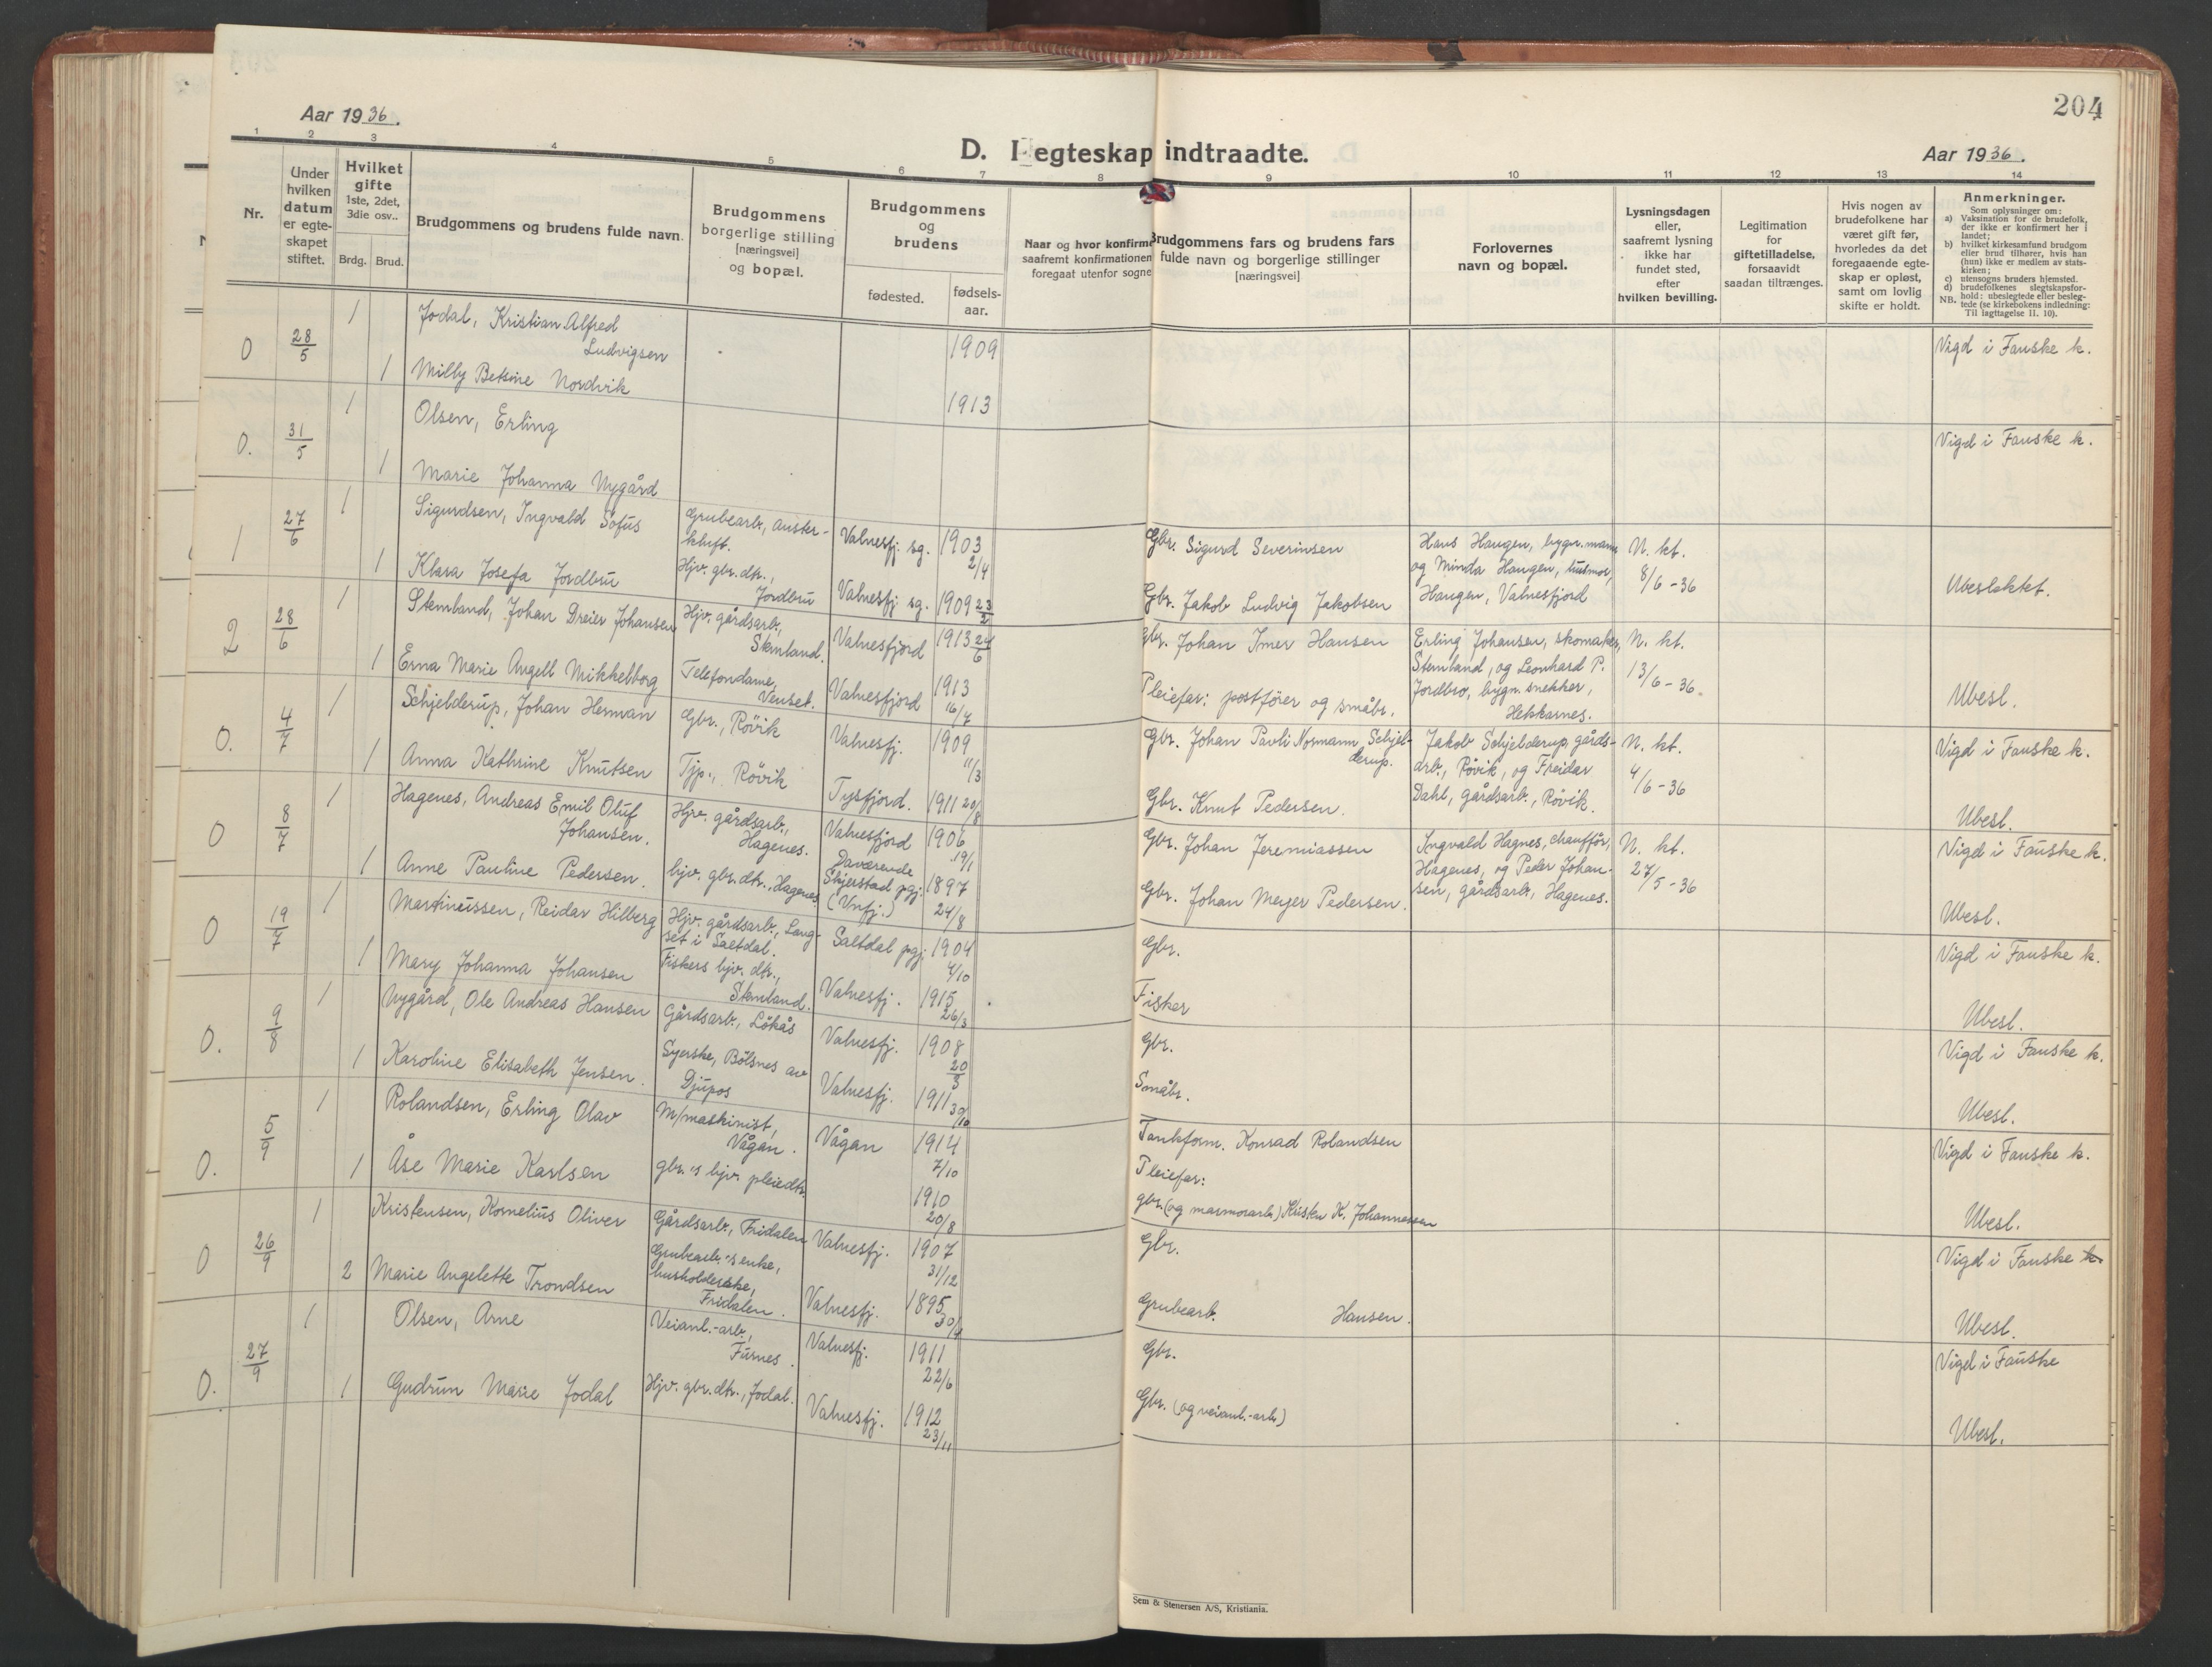 204
Aar 1936.
Aar 1936.
D. I egteskap indtraadte.
1 2 3 4 5 6 7 8 9 10 11 12 13 14
Nr.
Under hvilken datum er egte-skapet stiftet.
Hvilket gifte 1ste, 2det, 3die osv..
Brdg. Brud.
Brudgommens og brudens fulde navn.
Brudgommens borgerlige stilling [næringsvei] og bopæl.
Brudgommens og brudens
fødested.
fødsels-aar.
Naar og hvor konfirm
saafremt konfirmationen
foregaat utenfor sogne
Brudgommens fars og brudens fars
fulde navn og borgerlige stillinger
[næringsvei]
Forlovernes
navn og bopæl.
Lysningsdagen
eller,
saafremt lysning
ikke har
fundet sted,
efter
hvilken bevilling.
Legitimation
for
giftetilladelse,
forsaavidt
saadan tiltrænges.
Hvis nogen av
brudefolkene har
været gift før,
hvorledes da det
foregaaende egte-
skap er opløst,
samt om lovlig
skifte er holdt.
Anmerkninger.
Som oplysninger om:
a) Vaksination for de brudefolk, der ikke er konfirmert her i landet;
b) hvilket kirkesamfund brudgom eller brud tilhører, hvis han (hun) ikke er medlem av stats-kirken;
c) utensogns bruders hjemsted.
d) brudefolkenes slegtskapsfor-hold: ubeslegtede eller besleg-tede (se kirkebokens indledning:
NB. Til iagttagelse II. 10).
0 28/5 1 Jodal, Kristian Alfred
Ludvigsen 1909 Vigd i Fauske k.
1 Milly Betsine Nordvik 1913
0. 31/5 1 Olsen, Erling Vigd i Fauske k.
1 Marie Johanna Nygård
1 27/6 1 Sigurdsen, Ingvald Sofus Grubearb., Auster-
kluft. Valnesfj. sg. 1903 2/4 Gbr. Sigurd Severinsen
Hans Haugen, bygn.mann
og Minda Haugen, husmor,
Haugen, Valnesfjord
N. kt.
8/6-36
1 Klara Josefa Jordbru Hjv. gbr. dtr.,
Jordbru Valnesfj. sg. 1909 23/2 Gbr. Jakob Ludvig Jakobsen Ubeslektet.
2 28/6 1 Stemland, Johan Dreier Johansen Hjv. gårdsarb.,
Stemland. Valnesfjord 1913 24/6 Gbr. Johan Imer Hansen
Erling Johansen, skomaker,
Stemland, og Leonhard P.
Jordbro, bygn.snekker,
Hekkarnes.
N. kt.
13/6-36.
1 Erna Marie Angell Mikkelborg Telefondame,
Venset. Valnesfjord 1913 16/7 Pleiefar: postfører og småbr. Ubesl.
0. 4/7 1 Schjelderup, Johan Herman Gbr., Røvik Valnesfj. 1909 11/3 Gbr. Johan Pavli Normann Schjel-
derup.
Jakob Schjelderup, gårds-
arb., Røvik, og Freidar
Dahl, gårdsarb., Røvik.
N. kt.
4/6-36
Vigd i Fauske k.
1 Anna Kathrine Knutsen Tjp., Røvik Tysfjord. 1911 20/8 Gbr. Knut Pedersen. Ubesl.
0 8/7 1 Hagenes, Andreas Emil Oluf
Johansen. Hjv. gårdsarb.,
Hagenes. Valnesfjord 1906 19/1 Gbr. Johan Jeremiassen
Ingvald Hagnes, chauffør,
Hagenes, og Peder Johan-
sen, gårdsarb., Hagenes.
N. kt.
27/5-36
Vigd i Fauske k.
1 Anne Pauline Pedersen. hjv. gbr. dtr., Hagenes Daværende
Skjerstad pgj.
(Vnfj.) 1897 24/8 Gbr. Johan Meyer Pedersen. Ubesl.
0 19/7 1 Martinussen, Reidar Hilberg Hjv. gårdsarb., Lang-
set i Saltdal. Saltdal pgj. 1904 4/10 Gbr. Vigd i Fauske k.
1 Mary Johanna Johansen Fiskers hjv. dtr.,
Stemland. Valnesfj. 1915 26/3 Fisker Ubesl.
0. 9/8 1 Nygård, Ole Andreas Hansen Gårdsarb., Løkås Valnesfj. 1908 20/3 Gbr. Vigd i Fauske k.
1 Karoline Elisabeth Jensen. Syerske, Bølsnes av
Djupos Valnesfj. 1911 30/10 Småbr. Ubesl.
0. 5/9 1 Rolandsen, Erling Olav M/maskinist,
Vågan. Vågan 1914 7/10 Tankform. Konrad Rolandsen Vigd i Fauske k.
1 Åse Marie Karlsen gbr.'s hjv. pleiedtr. 1910 20/8 Pleiefar:
gbr. (og marmorarb.) K. Johannessen Ubesl.
0 26/9 1 Kristensen, Kornelius Oliver Gårdsarb., Fridalen Valnesfj. 1907 31/12 Gbr. Vigd i Fauske k.
2 Marie Angelette Trondsen Grubearb.'s enke,
husholderske,
Fridalen. Valnesfj. 1895 30/4 Grubearb. Hansen. Ubesl.
0. 27/9 1 Olsen, Arne Veianl.-arb.,
Furnes. Valnesfj. 1911 22/6 Gbr. Vigd i Fauske
1 Gudrun Marie Jodal Hjv. gbr. dtr., Jodal. Valnesfj. 1912 23/11 Gbr. (og veianl.-arb.) Ubesl.
Sem & Stenersen A/S, Kristiania.